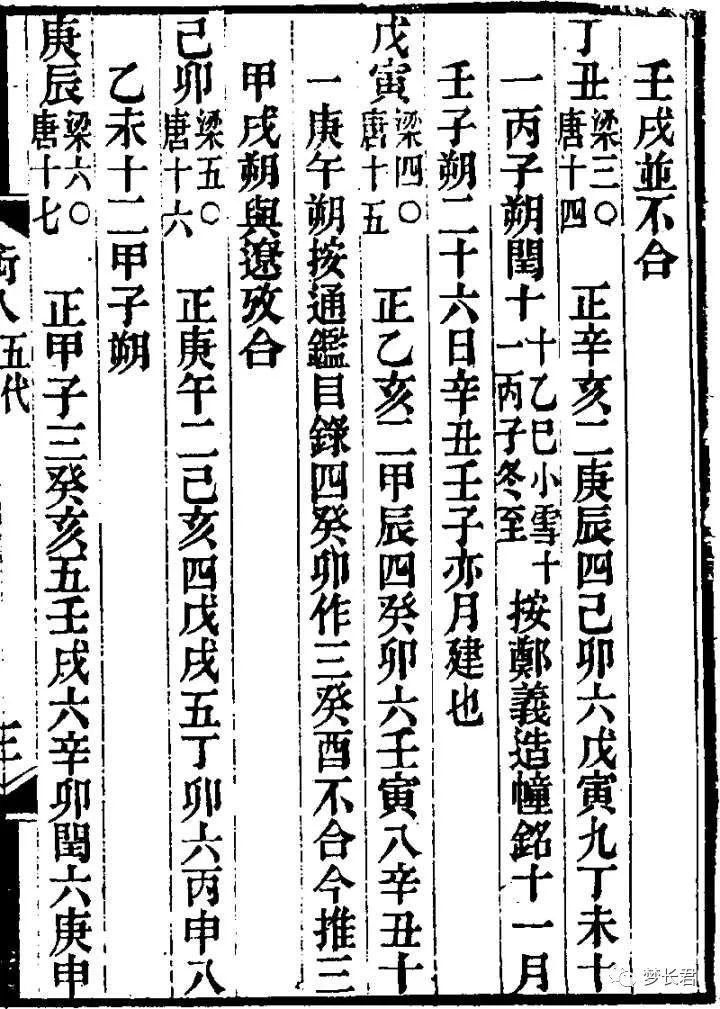 壬戌並不合
丁丑梁三○唐十四 正辛亥二庚辰四己卯六戊寅九丁未十
一丙子朔閏十十乙巳小雪十一丙子冬至 按鄭義造幢銘十一月
壬子朔二十六日辛丑壬子亦月建也
戊寅梁四○唐十五 正乙亥二甲辰四癸卯六壬寅八辛丑十
一庚午朔按通鑑目錄四癸卯作三癸酉不合今推三
甲戌朔與遼攷合
己卯梁五○唐十六 正庚午二己亥四戊戌五丁卯六丙申八
乙未十二甲子朔
庚辰梁六○唐十七 正甲子三癸亥五壬戌六辛卯閏六庚申
五代
梦长君